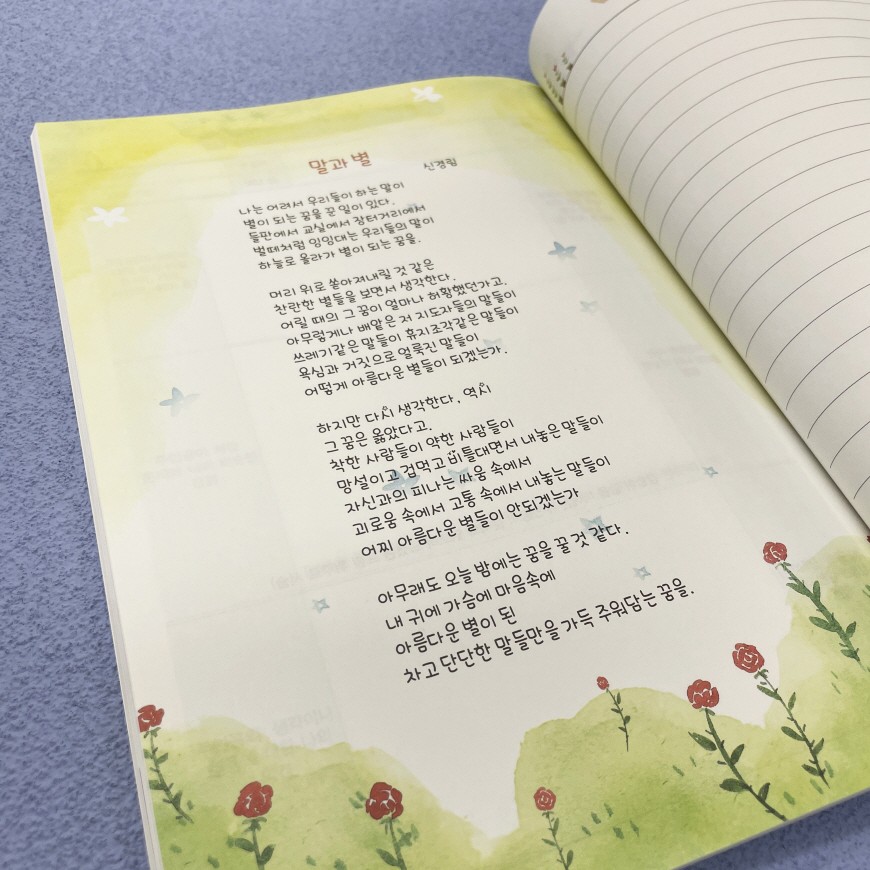 말과 별
신경림
나는 어려서 우리들이 하는 말이
별이 되는 꿈을 꾼 일이 있다.
들판에서 교실에서 장터거리에서
벌떼처럼 잉잉대는 우리들의 말이
하늘로 올라가 별이 되는 꿈을.
머리 위로 쏟아져내릴 것 같은
찬란한 별들을 보면서 생각한다.
어릴 때의 그 꿈이 얼마나 허황했던가고.
아무렇게나 배앝은 저 지도자들의 말들이
쓰레기같은 말들이 휴지조각같은 말들이
욕심과 거짓으로 얼룩진 말들이
어떻게 아름다운 별들이 되겠는가.
하지만 다시 생각한다. 역시
그 꿈은 옳았다고.
착한 사람들이 약한 사람들이
망설이고 겁먹고 비틀대면서 내놓은 말들이
자신과의 피나는 싸움 속에서
괴로움 속에서 고통 속에서 내놓는 말들이
어찌 아름다운 별들이 안되겠는가
아무래도 오늘 밤에는 꿈을 꿀 것 같다.
내 귀에 가슴에 마음속에
아름다운 별이 된
차고 단단한 말들만을 가득 주워담는 꿈을.